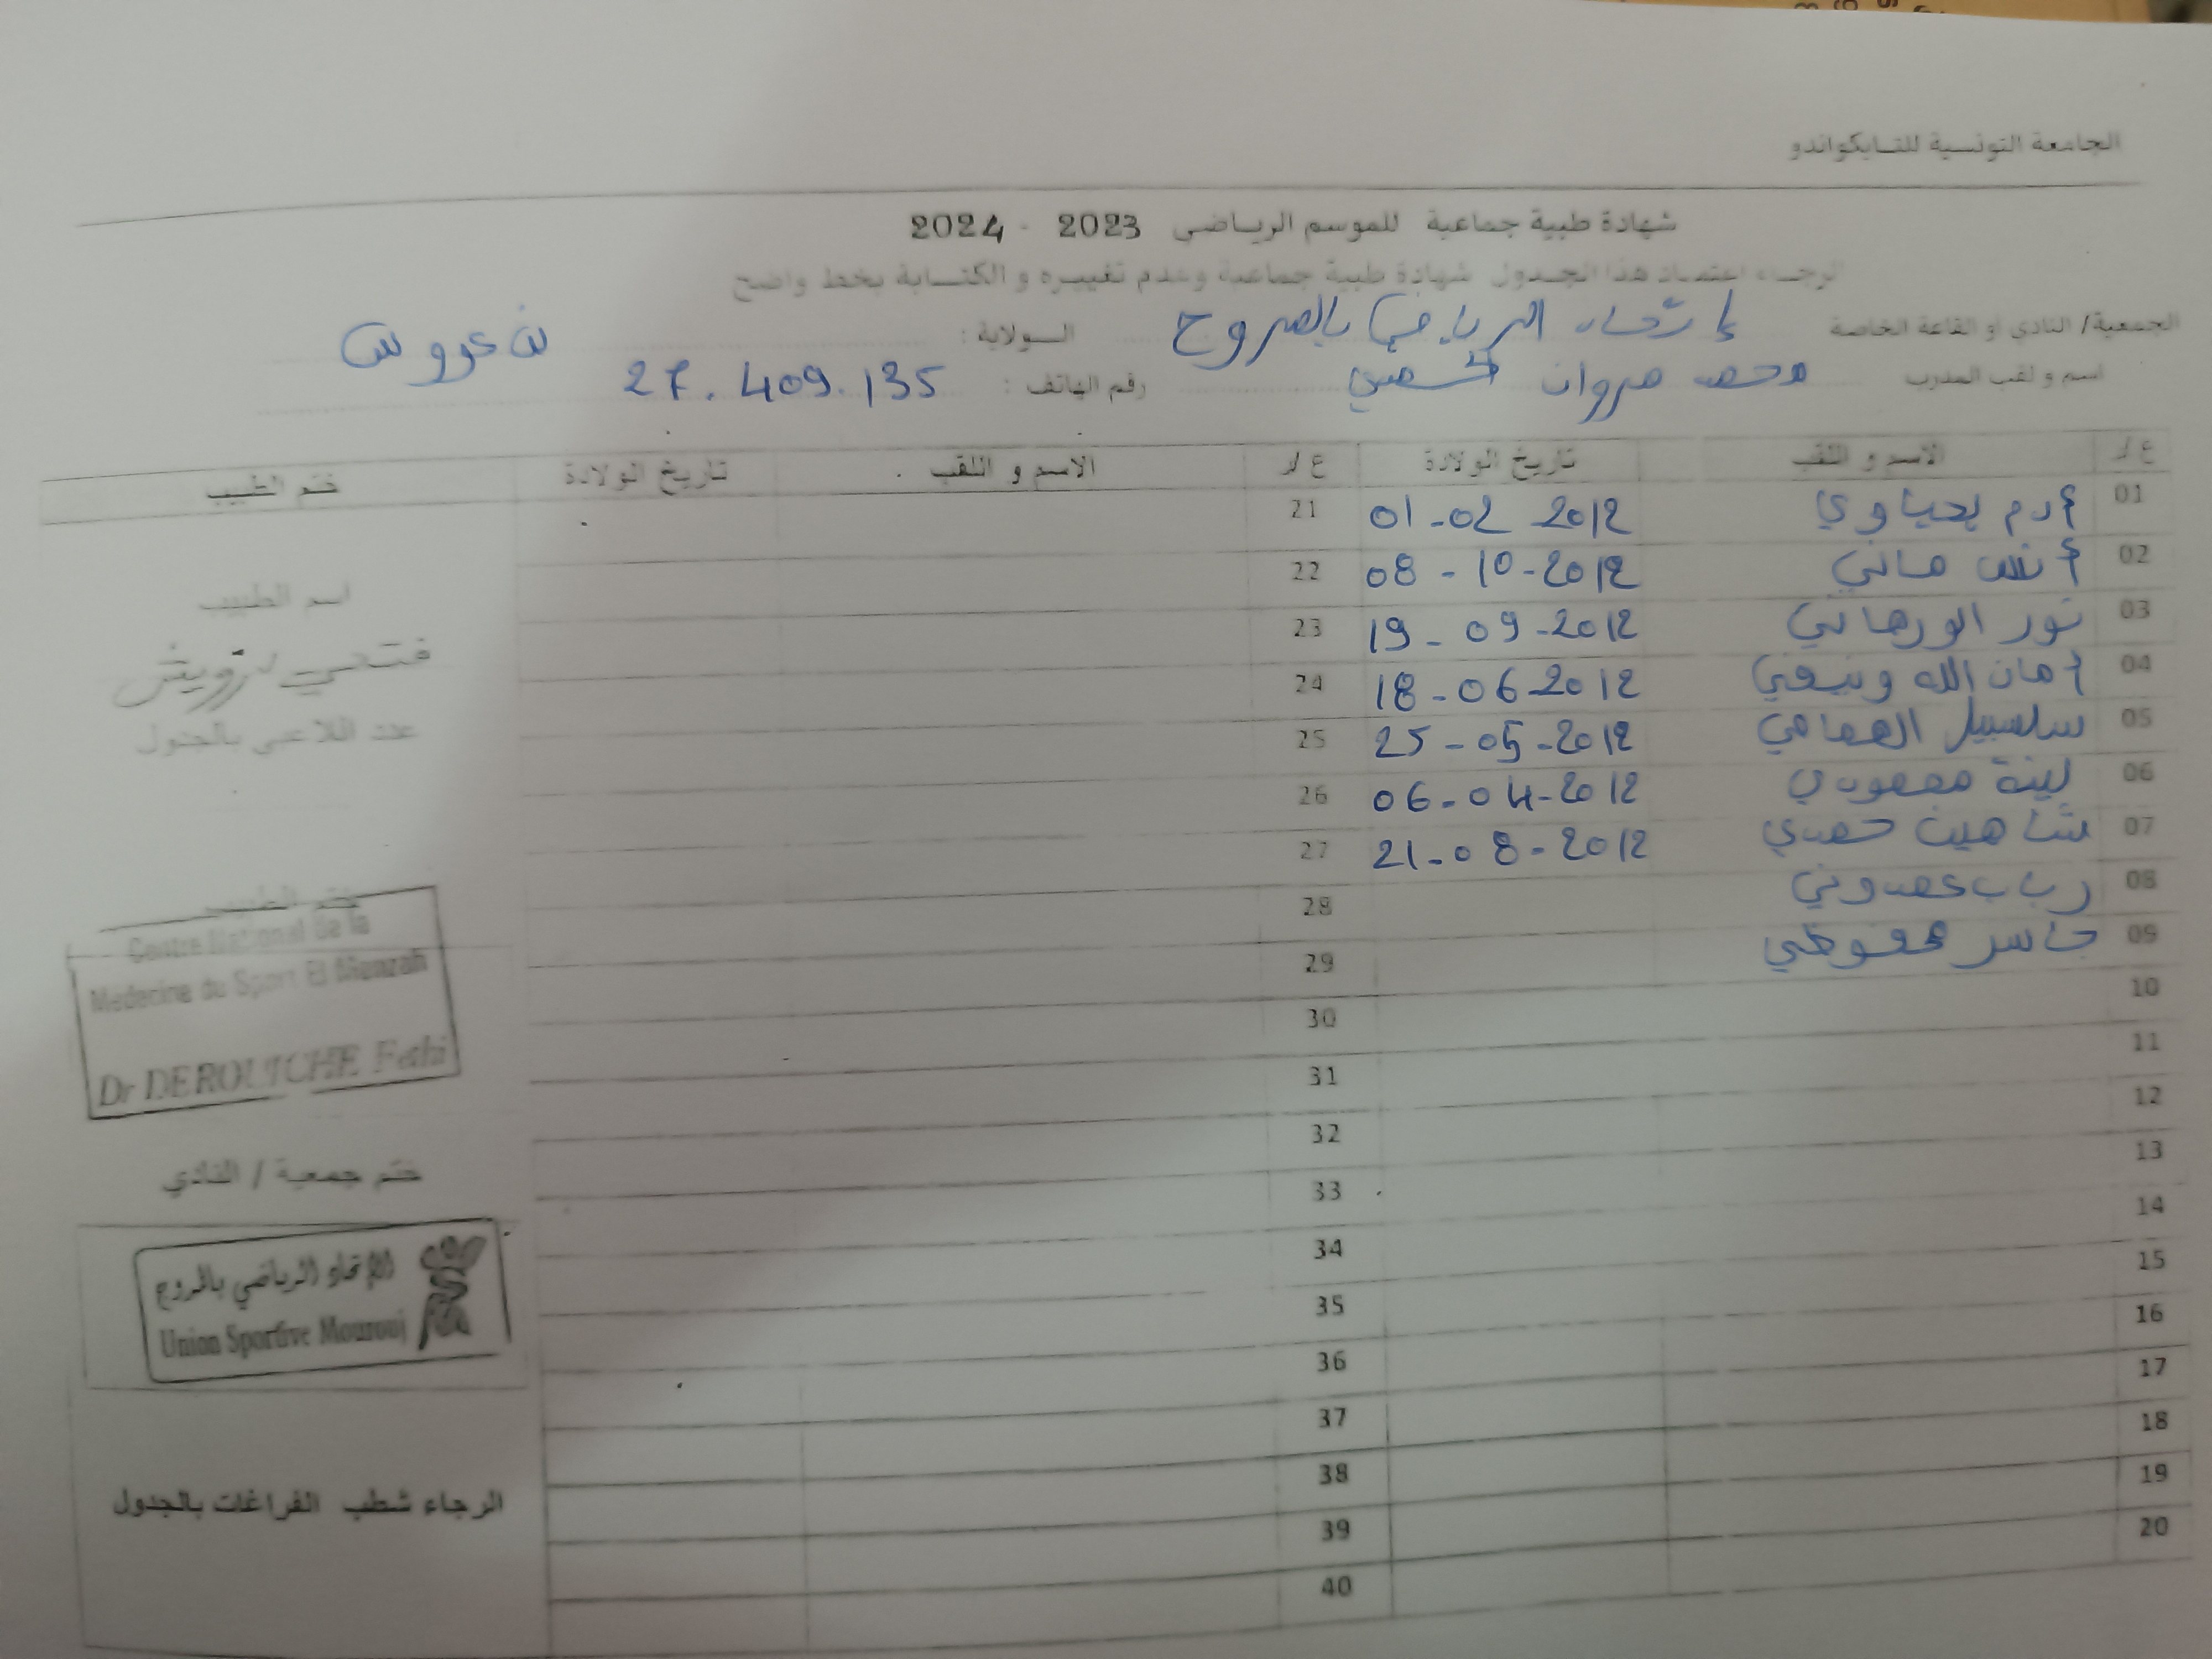 الجامعة التونسية للتايكواندو
شهادة طبية جماعية للموسم الرياضي 2023 - 2024
الرجاء اعتماد هذا الجدول شهادة طبية جماعية وعدم تغييره و الكتابة بخط واضح
الجمعية/ النادي او القاعة الخاصة إتحاد الرياضي بالمروج السولاية : بن عروس
اسم و لقب المدرب محمد مروان رقم الهاتف : 27.409.135
ع/د الاسم و اللقب تاريخ الولادة ع/د الاسم و اللقب تاريخ الولادة ختم الطبيب
01 آدم يحياوي 01-02-2012 21
02 أنس ماني 08-10-2012 22
03 نور الورهاني 19-09-2012 23
04 أمان الله ونيفي 18-06-2012 24
05 سلسبيل الهمامي 25-05-2012 25
06 لينة 06-04-2012 26
07 شاهين حمدي 21-08-2012 27
08 رباب عمدوني 28
09 جاسر محفوظي 29
10 30
11 31
12 32
13 33
14 34
15 35
16 36
17 37
18 38
19 39
20 40
اسم الطبيب
فتحي درويش
عدد اللاعبي بالجدول
ختم الطبيب
Centre National de la
Médecine du Sport El Menzah
Dr DEROUICHE Fethi
ختم جمعية / النادي
الإتحاد الرياضي بالمروج
Union Sportive Mourouj
الرجاء شطب الفراغات بالجدول